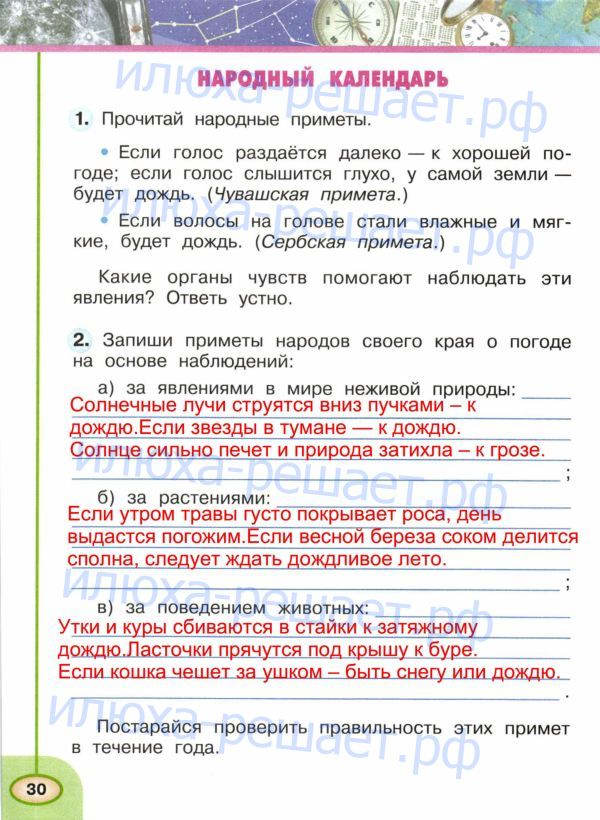 НАРОДНЫЙ КАЛЕНДАРЬ
1. Прочитай народные приметы.
• Если голос раздаётся далеко — к хорошей по-
годе; если голос слышится глухо, у самой земли —
будет дождь. (Чувашская примета.)
• Если волосы на голове стали влажные и мяг-
кие, будет дождь. (Сербская примета.)
Какие органы чувств помогают наблюдать эти
явления? Ответь устно.
2. Запиши приметы народов своего края о погоде
на основе наблюдений:
а) за явлениями в мире неживой природы:
Солнечные лучи струятся вниз пучками – к
дождю.Если звезды в тумане — к дождю.
Солнце сильно печет и природа затихла – к грозе.
;
б) за растениями:
Если утром травы густо покрывает роса, день
выдастся погожим.Если весной береза соком делится
сполна, следует ждать дождливое лето.
;
в) за поведением животных:
Утки и куры сбиваются в стайки к затяжному
дождю.Ласточки прячутся под крышу к буре.
Если кошка чешет за ушком – быть снегу или дождю.
.
Постарайся проверить правильность этих примет
в течение года.
30
илюха-решает.рф
илюха-решает.рф
илюха-решает.рф
илюха-решает.рф
илюха-решает.рф